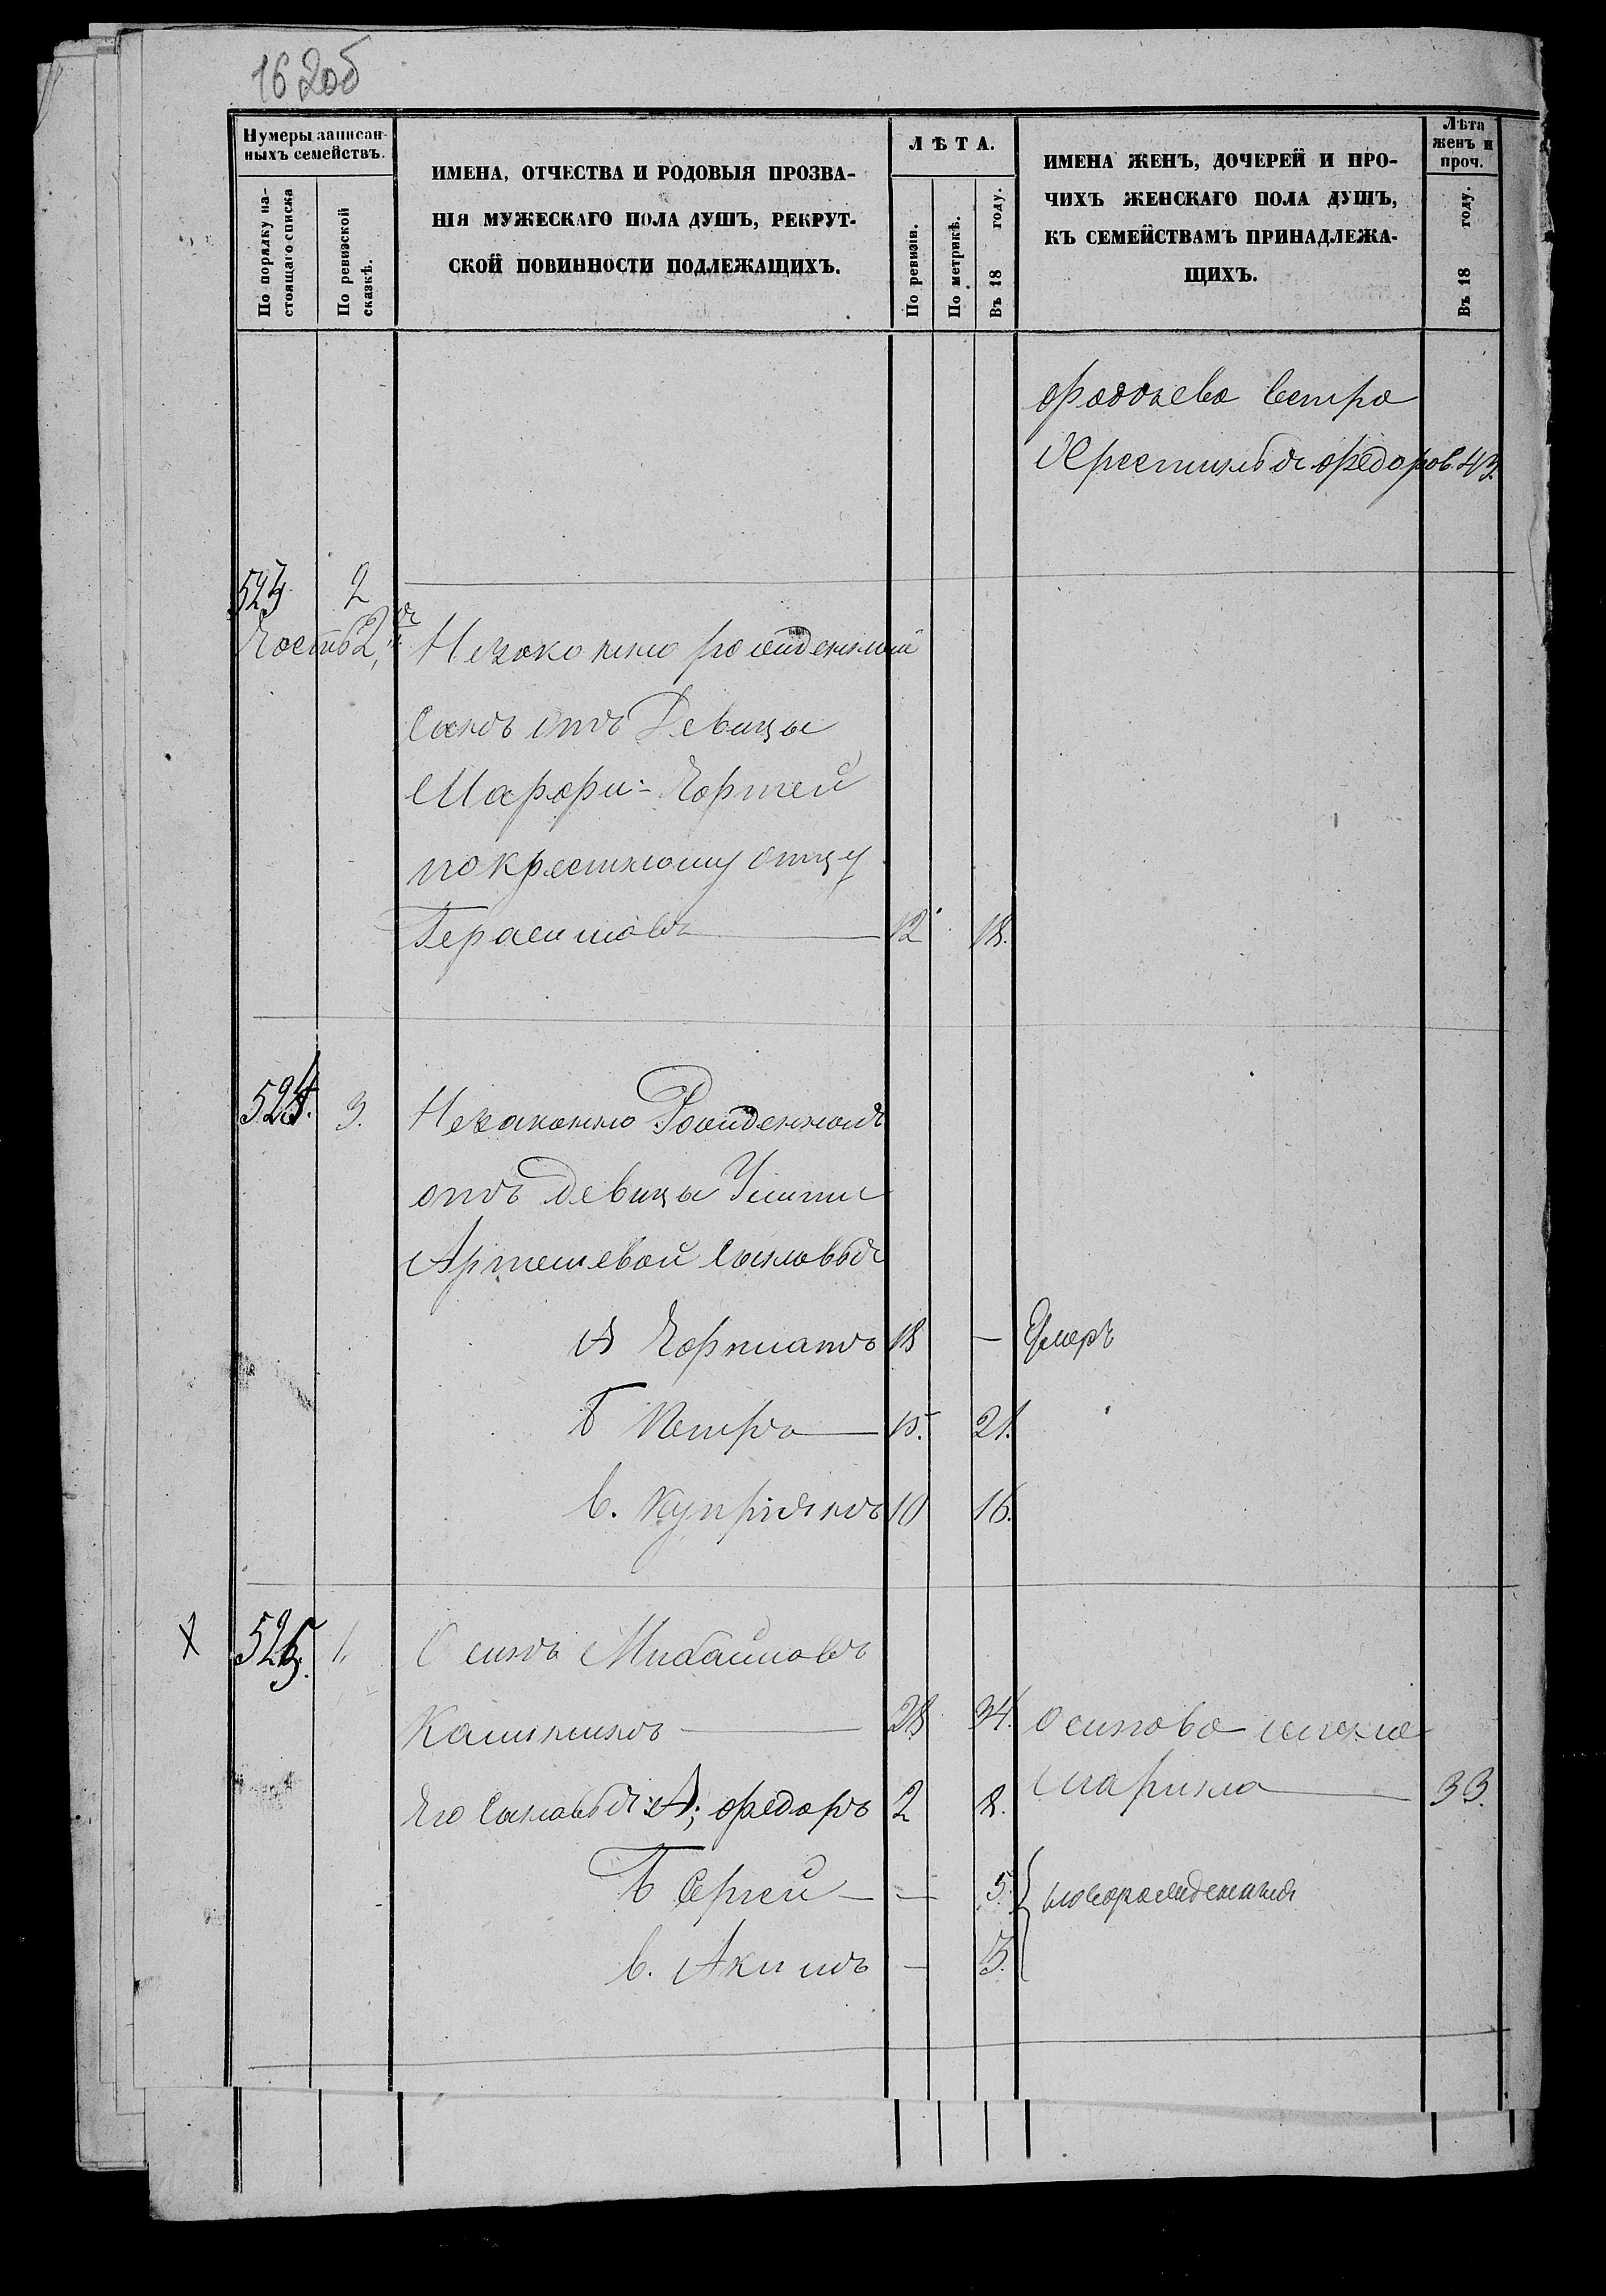 162об
Нумеры записан-
ныхъ семействъ.
По порядку на-
стоящаго списка
По ревизской
сказкѣ.
ИМЕНА, ОТЧЕСТВА И РОДОВЫЯ ПРОЗВА-
НІЯ МУЖЕСКАГО ПОЛА ДУШЪ, РЕКРУТ-
СКОЙ ПОВИННОСТИ ПОДЛЕЖАЩИХЪ.
ЛѢТА.
По ревизіи.
По метрикѣ.
Въ 18 году.
ИМЕНА ЖЕНЪ, ДОЧЕРЕЙ И ПРО-
ЧИХЪ ЖЕНСКАГО ПОЛА ДУШЪ,
КЪ СЕМЕЙСТВАМЪ ПРИНАДЛЕЖА-
ЩИХЪ.
Лѣта
женъ и
проч.
Въ 18 году.
сестра
Федоров. 43.
523 2
Часть 2,я Незаконно рожденный
сынъ отъ Девицы
Марфы - Ефрей
по крестному отцу
Герасимовъ 12 18.
524. 3. Незаконно Рожденныя
отъ девицы
Артемевой сыновья
А 18 — Умеръ
Б Петръ 15. 21.
в. Купріянъ 10 16.
X 525. 1. Осипъ Михайловъ
Калининъ 28 34. Осипова жена
Марина 33.
Его сыновья: А; Федоръ 2 8.
Б Сергей — — 5. новорожденныя
в. Акимъ — 3.